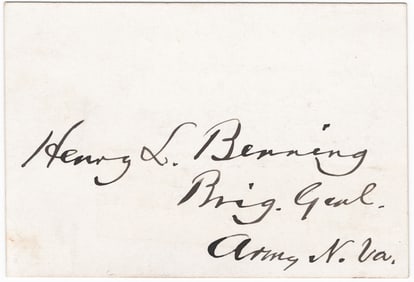 Henry L. Benning
Brig. Genl.
Army N. Va.